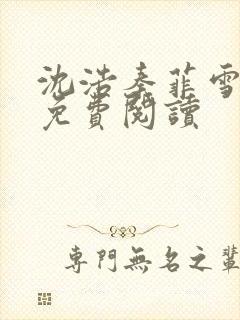 沈浩秦菲雪
免費閱讀
專門無名之輩